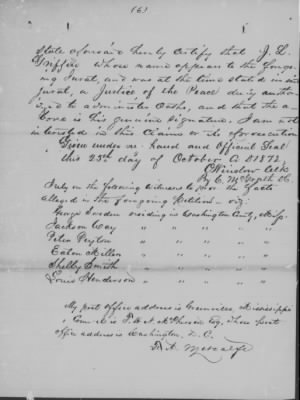 (6)
State aforesaid hereby certify that J. L.
Griffin whose name appears to the forego-
ing Jurat, and was at the time stated in said
jurat, a Justice of the Peace duly author-
ized to administer Oaths, and that the a-
bove is his genuine signature. I am not
interested in this Claim or its prosecution
Given under my hand and Official Seal
this 23rd day of October A D 1872.
C Winslow Clk
By C. DC.
I rely on the following witnesses to prove the facts
alleged in the foregoing Petition - viz:
George Worden residing in Washington County, Miss.
Jackson Way " " " "
Peter Peyton " " " "
Eaton Miller " " " "
Shelby Smith " " " "
Louis Henderson " " " "
My post office address is Greenville, Mississippi
& Coun is Esq. whose post
office address is Washington, D. C.
Metcalfe